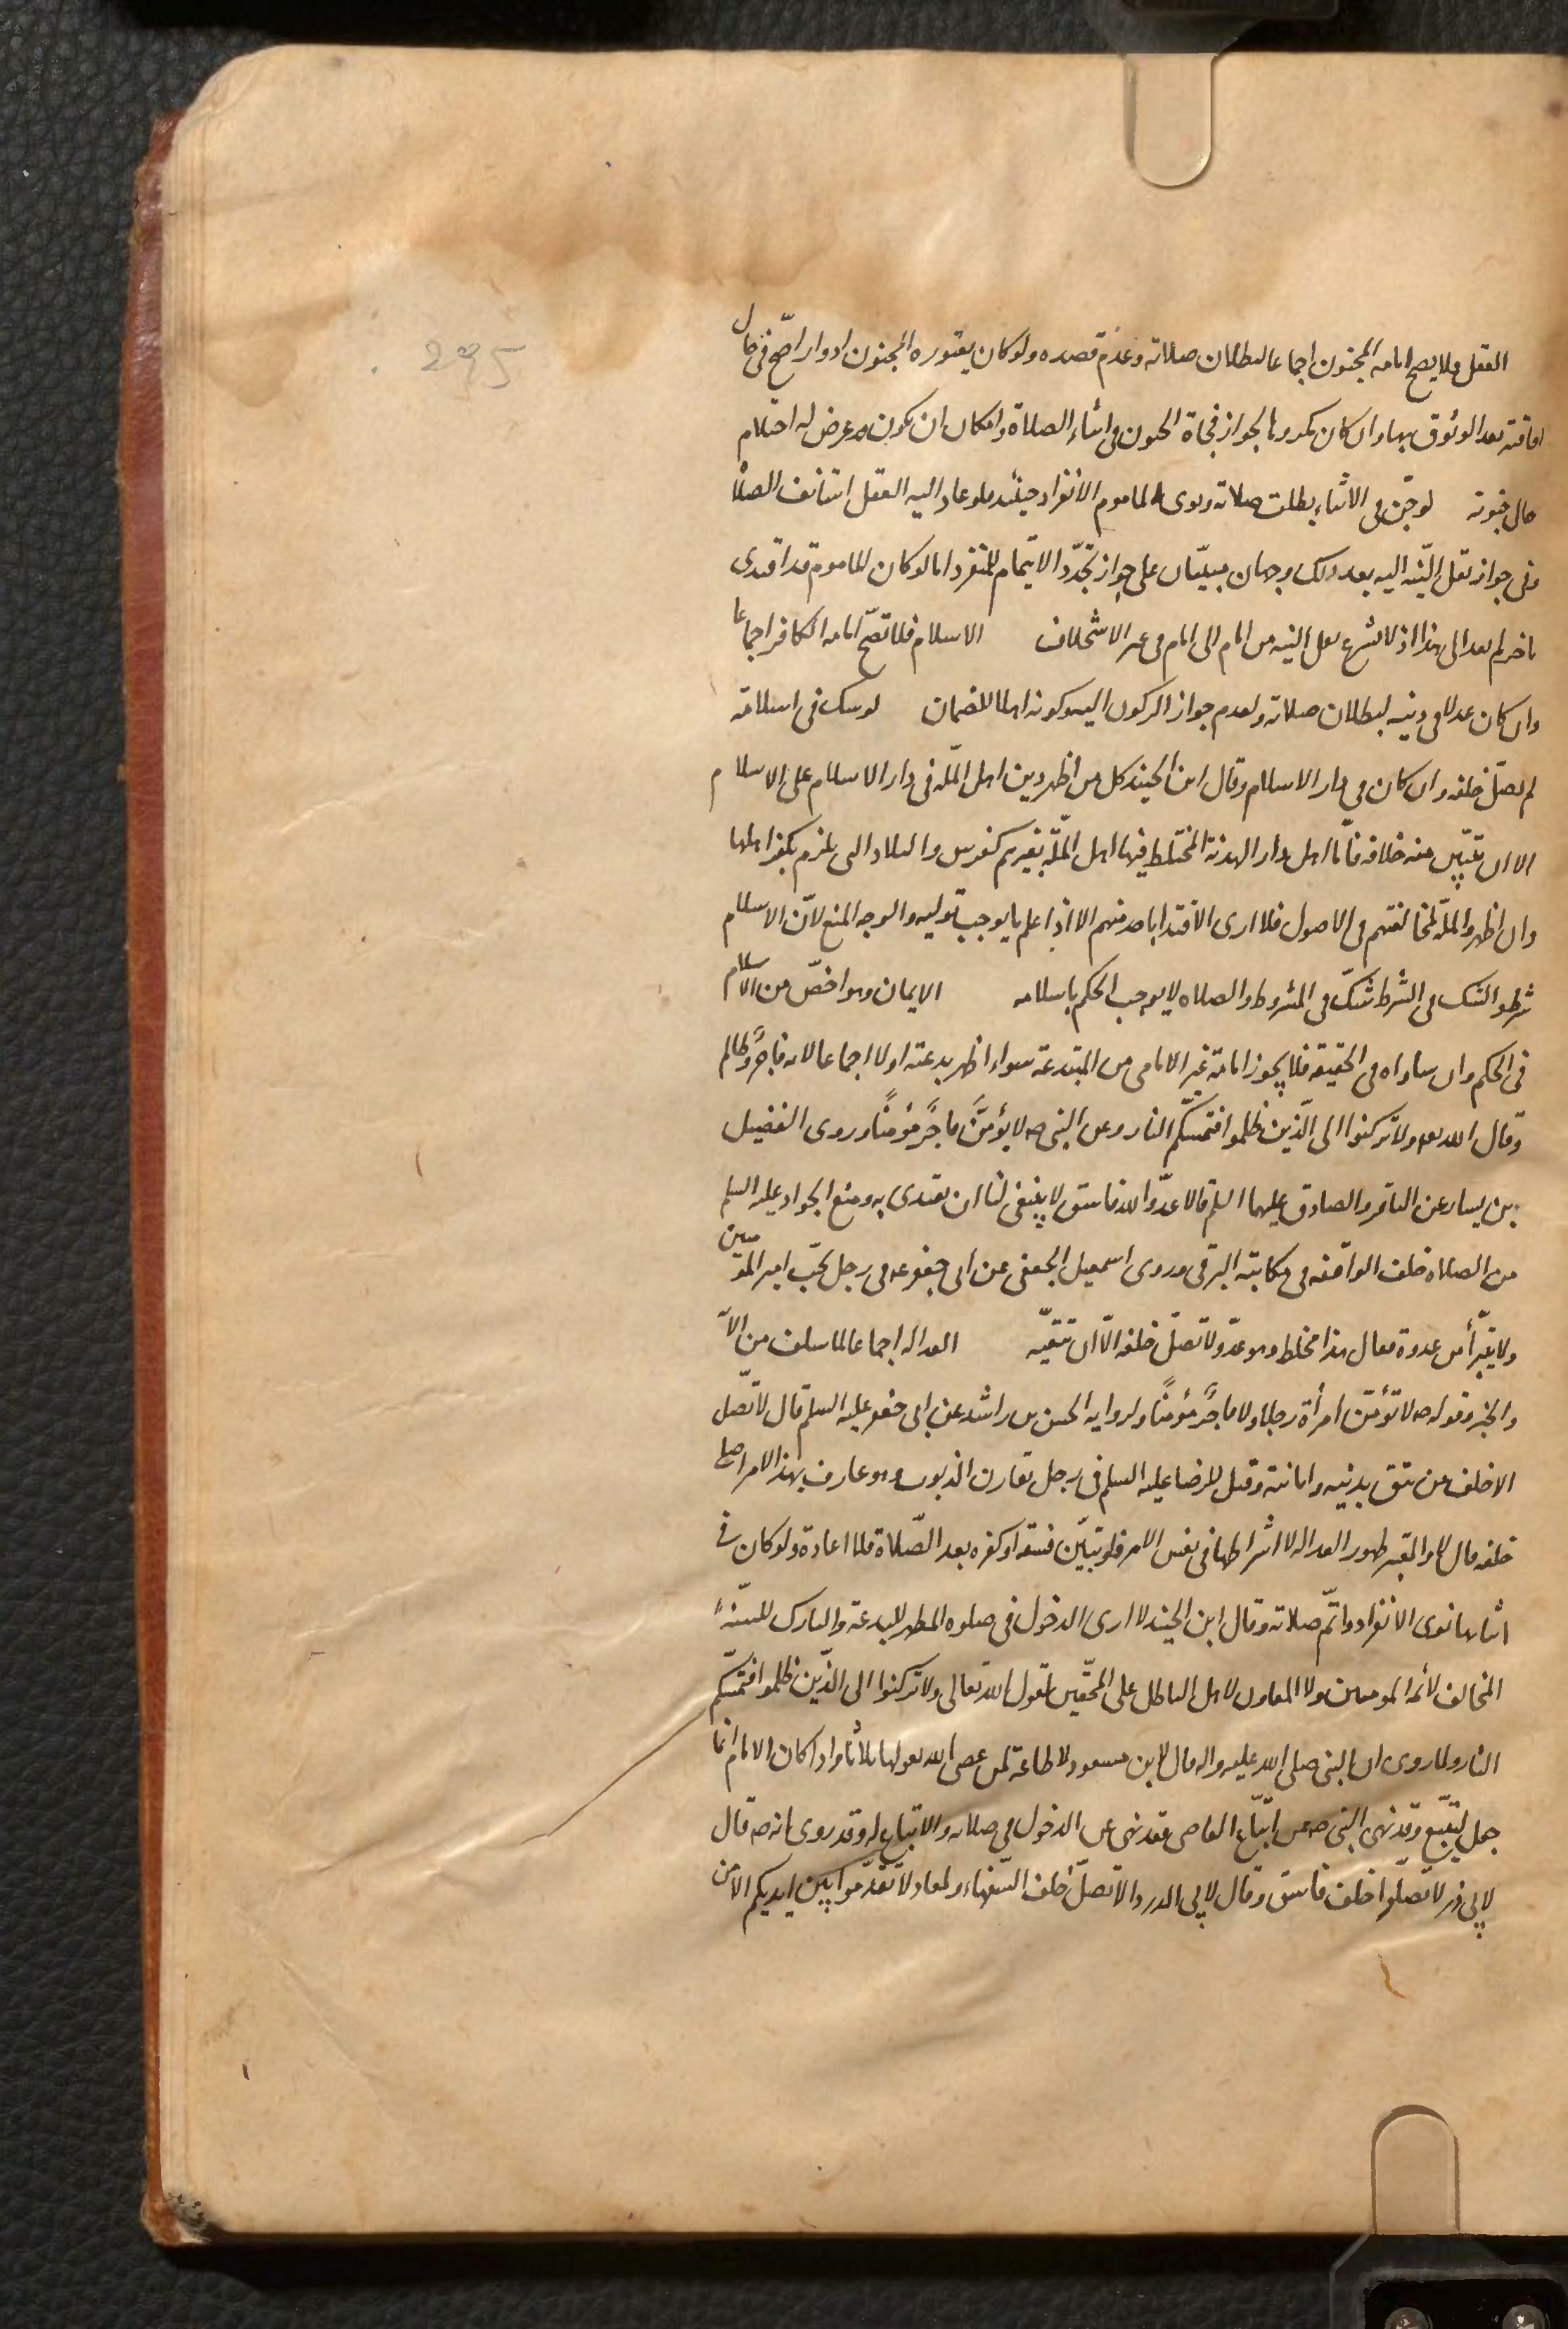 295
العقل فلا يصح امامه المجنون اجماعا لبطلان صلاته وعدم قصده ولو كان يعتوره الجنون ادوارا صحّ في حال
افاقته بعد الوثوق بها وان كان مكروها لجواز فجاة الجنون فى اثناء الصلاة وامكان ان يكون قد عرض له احتلام
حال جنونه لو جنّ فى الاثناء بطلت صلاته ونوى الماموم الانفراد حينئذ فلو عاد اليه العقل استانف الصلاة
وفى جواز نقل النيّه اليه بعد ذلك وجهان مبنيّان على جواز تجدّد الايتمام للمنفرد اما لو كان الماموم قد اقتدى
باخر لم يعد الى هذا اذ لا يشرع نقل النيه من امام الى امام فى غير الاستخلاف الاسلام فلا تصحّ امامه الكافر اجماعا
وان كان عدلا فى دينه لبطلان صلاته ولعدم جواز الركون اليه وكونه اهلا للضمان لو شك فى اسلامه
لم يصلّ خلفه وان كان في دار الاسلام وقال ابن الجنيد كل من اظهر دين اهل الملّه فى دار الاسلام على الاسلام
الا ان يتبيّن منه خلافه فامّا اهل دار الهدنة المختلط فيها اهل الملّة بغيرهم كفرس والبلاد التى يلزم بكفر اهلها
وان اظهروا الملّه لمخالفتهم فى الاصول فلا ارى الاقتدا باحد منهم الا اذا علم ما يوجب توليه والوجه المنع لانّ الاسلام
شرط والشك فى الشرط شكّ فى المشروط والصلاه لا يوجب الحكم باسلامه الايمان وهو اخصّ من الاسلام
فى الحكم وان ساواه فى الحقيقه فلا يجوز امامة غير الامامى من المبتدعة سواء اظهر بدعته اولا اجماعا لانه فاجرٌ وظالم
وقال الله تعه ولا تركنوا الى الّذين ظلموا فتمسّكم النار وعن النبى صه لا يؤمّنَّ فاجرٌ مؤمنًا وروى الفضيل
بن يسار عن الباقر والصادق عليهما السلم قالا عدوّ الله فاسق لا ينبغى لنا ان نقتدى به ومنع الجواد عليه السلم
من الصلاه خلف الواقفه فى مكاتبة البرقى وروى اسمعيل الجعفى عن ابى جعفر عه فى رجل يحبّ امير المؤمنين
ولا يتبرّأ من عدوه فقال هذا مخلط وهو عدوّ ولا تصلّ خلفه الّا ان تتقيه العداله اجماعا لما سلف من الآ
والخبر وقوله صه لا تؤمّنّ امرأة رجلا ولا فاجرٌ مؤمنًا ولروايه الحسن بن راشد عن ابى جعفر عليه السلم قال لا تصلّ
الا خلف من تثق بدينه وامانته وقيل للرضا عليه السلم فى رجل يقارف الذنوب وهو عارف بهذا الامر اصلى
خلفه قال لا والمعتبر ظهور العداله لا اشتراطها فى نفس الامر فلو تبيّن فسقه او كفره بعد الصّلاة فلا اعادة ولو كان في
اثنائها نوى الانفراد واتمّ صلاته وقال ابن الجنيد لا ارى الدخول فى صلوه المظهر للبدعة والتارك للسنّه
المخالف لائمه المومنين ولا المعاون لاهل الباطل على المحقّين لقول الله تعالى ولا تركنوا الى الّذين ظلموا فتمسّكم
النار ولما روى ان النبى صلى الله عليه واله قال لابن مسعود لا طاعة لمن عصى الله يقولها ثلاثا واذا كان الامام انما
جعل ليتّبع وقد نهى النبى صه عن اتّباع العاصى فقد نهى عن الدخول فى صلاته والاتباع له وقد روى انه صه قال
لابى ذر لا تصلّوا خلف فاسق وقال لابى الدردا لا تصلّ خلف السّفهاء ولمعاد لا تقدّموا بين ايديكم الا من